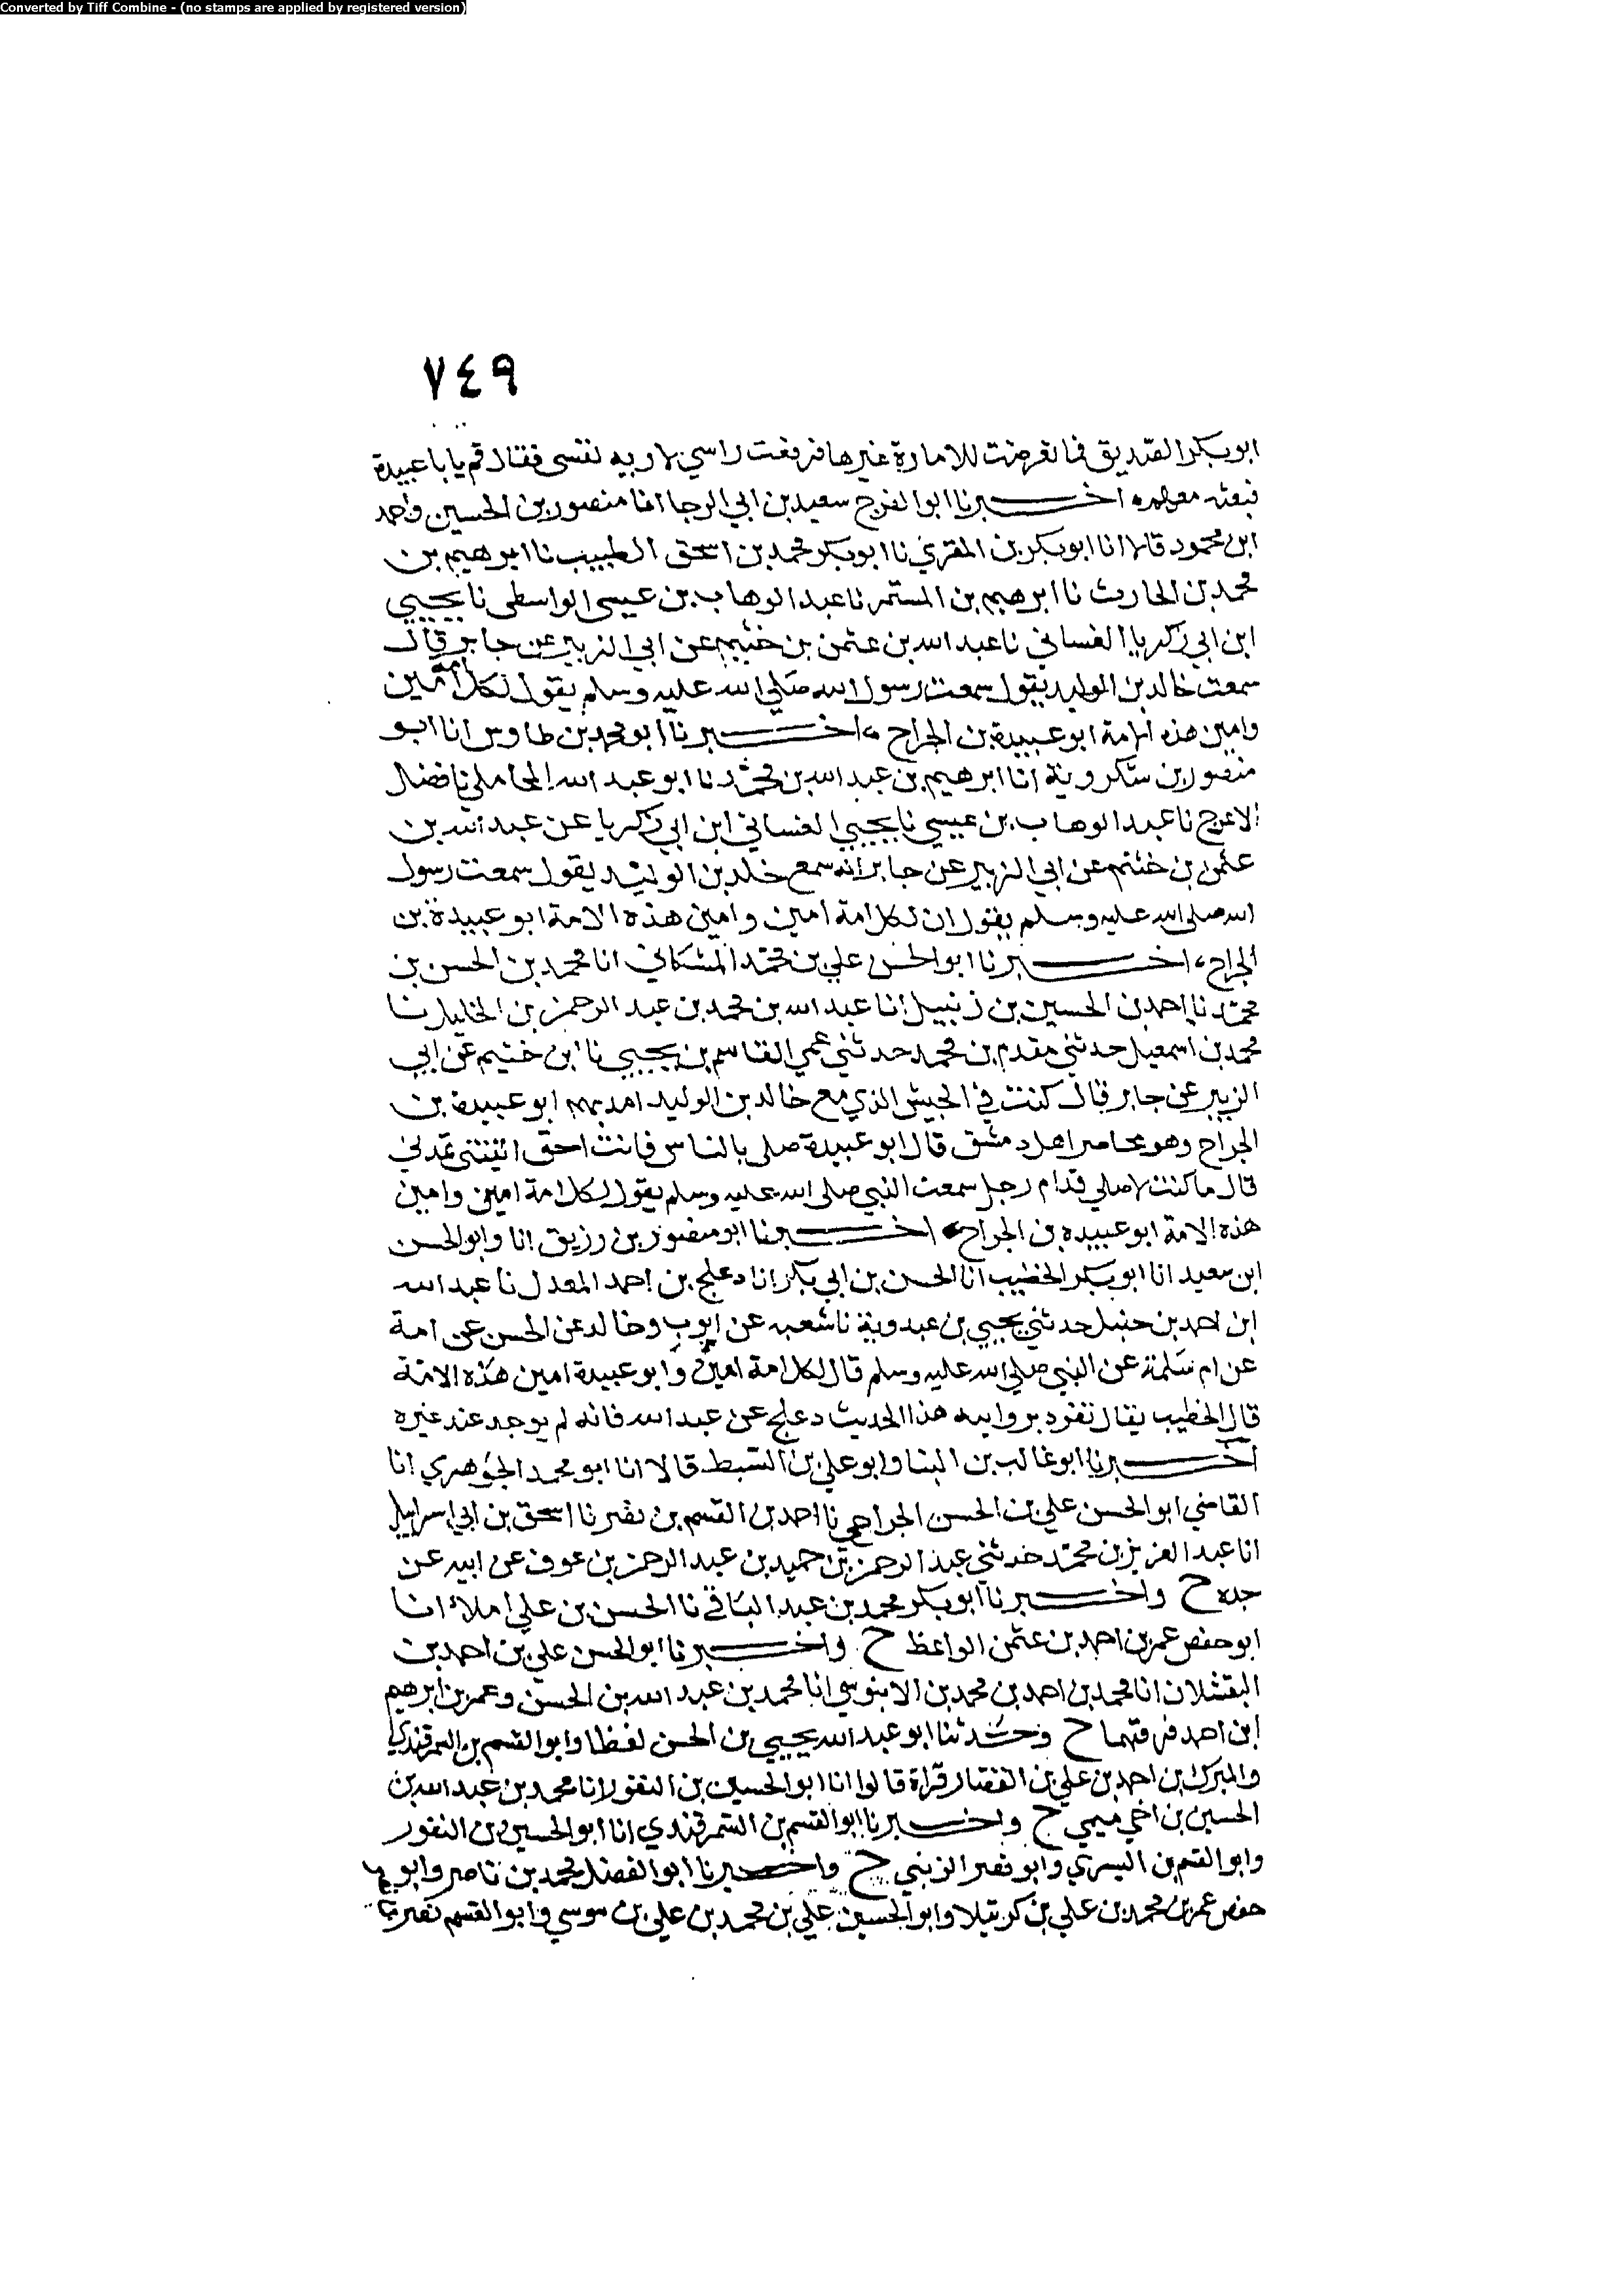 Converted by Tiff Combine - (no stamps are applied by registered version)
٧٤٩
ابو بكر الصديق فما تعرضت للامارة غيرها فرفعت راسي لاريه نفسي فقال قم يا با عبيدة
فبعثه معهم اخــــبرنا ابو الفرج سعيد بن ابي الرجا انا منصور بن الحسين واحمد
ابن محمود قالا انا ابو بكر بن المقري نا ابو بكر محمد بن اسحق الطبيب نا ابرهيم بن
محمد بن الحارث نا ابرهيم بن المستمر نا عبد الوهاب بن عيسى الواسطي نا يحيى
ابن ابي زكريا الغساني نا عبد الله بن عثمن بن خثيم عن ابي الزبير عن جابر قال
سمعت خالد بن الوليد يقول سمعت رسول الله صلى الله عليه وسلم يقول لكل امة امين
وامين هذه الامة ابو عبيدة بن الجراح اخــــبرنا ابو محمد بن طاوس انا ابو
منصور بن شكروية انا ابرهيم بن عبد الله بن محمد نا ابو عبد الله المحاملي نا فضل
الاعرج نا عبد الوهاب بن عيسي نا يحيي الغساني ابن ابي زكريا عن عبد الله بن
عثمن بن خثيم عن ابي الزبير عن جابر انه سمع خلد بن الوليد يقول سمعت رسول
الله صلى الله عليه وسلم يقول ان لكل امة امين وامين هذه الامة ابو عبيدة بن
الجراح، اخــــبرنا ابو الحسن علي بن محمد المشكاني انا محمد بن الحسن بن
محمد نا احمد بن الحسين بن زنبيل انا عبد الله بن محمد بن عبد الرحمن بن الخليل نا
محمد بن اسمعيل حدثني مقدم بن محمد حدثني عمي القاسم بن يحيي نا ابن خثيم عن ابي
الزبير عن جابر قال كنت في الجيش الذي مع خالد بن الوليد امد بهم ابو عبيدة بن
الجراح وهو محاصر اهل دمشق قال ابو عبيدة صلى بالناس فانت احق اتيتني تمدني
قال ما كنت لاصلي قدام رجل سمعت النبي صلى الله عليه وسلم يقول لكل امة امين وامين
هذه الامة ابو عبيده بن الجراح اخــــبرنا ابو منصور بن رزيق انا وابو الحسن
ابن سعيد انا ابو بكر الخطيب انا الحسن بن ابي بكر انا دعلج بن احمد المعدل نا عبد الله
ابن احمد بن حنبل حدثني يحيي بن عبدوية نا شعبه عن ايوب وخالد عن الحسن عن امة
عن ام سلمة عن النبي صلي الله عليه وسلم قال لكل امة امين وابو عبيدة امين هذه الامة
قال الخطيب يقال تفرد بروايه هذا الحديث دعلج عن عبد الله فانه لم يوجد عند غيره
اخــــبرنا ابو غالب بن البنا وابو علي بن السبط قالا انا ابو محمد الجوهري انا
القاضي ابو الحسن علي بن الحسن الجراحي نا احمد بن القسم بن نصر نا اسحق بن ابي اسراييل
انا عبد العزيز بن محمد حدثني عبد الرحمن بن حميد بن عبد الرحمن بن عوف عن ابيه عن
جده ح واخــــبرنا ابو بكر محمد بن عبد الباقي نا الحسن بن علي املاء انا
ابو حفص عمر بن احمد بن عثمن الواعظ ح واخــــبرنا ابو الحسن علي بن احمد بن
البقشلان انا محمد بن احمد بن محمد بن الابنوسي انا محمد بن عبد الله بن الحسن وعمر بن ابرهيم
ابن احمد فرقهما ح وحدثنا ابو عبد الله يحيي بن الحسن لفظا وابو القسم بن السمرقندي
والمبرك بن احمد بن علي بن القصار قراة قالوا انا ابو الحسين بن النقور انا محمد بن عبد الله بن
الحسين بن اخي ميمي ح واخــــبرنا ابو القسم بن السمرقندي انا ابو الحسين بن النقور
وابو القسم بن البسري وابو نصر الزينبي ح واخــــبرنا ابو الفضل محمد بن ناصر وابو
حفص عمر بن محمد بن علي بن كربتيلا وابو الحسين علي بن محمد بن علي بن موسي وابو القسم نصر